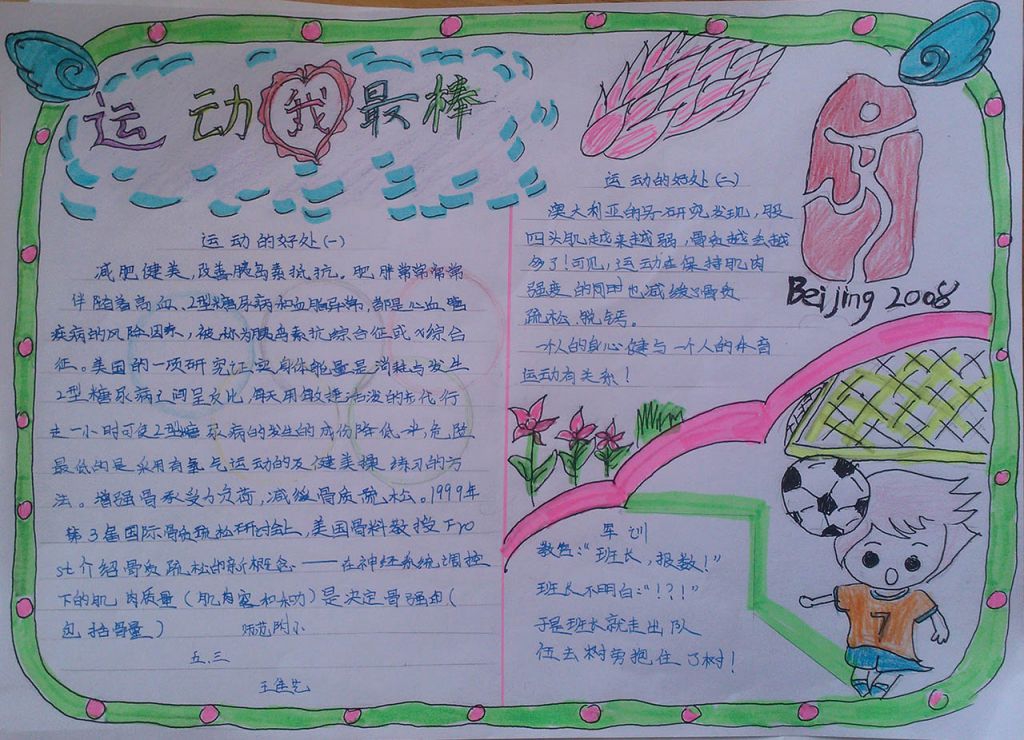 运动我最棒
运动的好处(一)
减肥健美,改善胰岛素抵抗。肥胖常常常常
伴随着高血、2型糖尿病和血脂异常,都是心血管
疾病的风险因素,被称为胰岛素抗综合征或x综合
征。美国的一项研究证实身体能量是消耗与发生
2型糖尿病之间呈反比,每天用敏捷活泼的步代行
走一小时可使2型糖尿病的发生的成份降低一半危险
最低的是采用有氧气运动的及健美操练习的方
法。增强骨承受力负荷,减缓骨质疏松。1999年
第3届国际骨质疏松研讨会上,美国骨科教授Fro
st介绍骨质疏松的新概念——在神经系统调控
下的肌肉质量(肌肉容和动)是决定骨强的(
包括骨量)
师范附小
五.三
王佳艺
运动的好处(二)
澳大利亚的另一研究发现,股
四头肌越来越弱,骨质越去越
多了!可见,运动在保持肌肉
强度的同时也减缓了骨质
疏松.脱钙。
一个人的身心健与一个人的体育
运动有关系!
Beijing 2008
军训
教官:“班长,报数!”
班长不明白:“!?!”
于是班长就走出队
伍去树旁抱住了树!
7